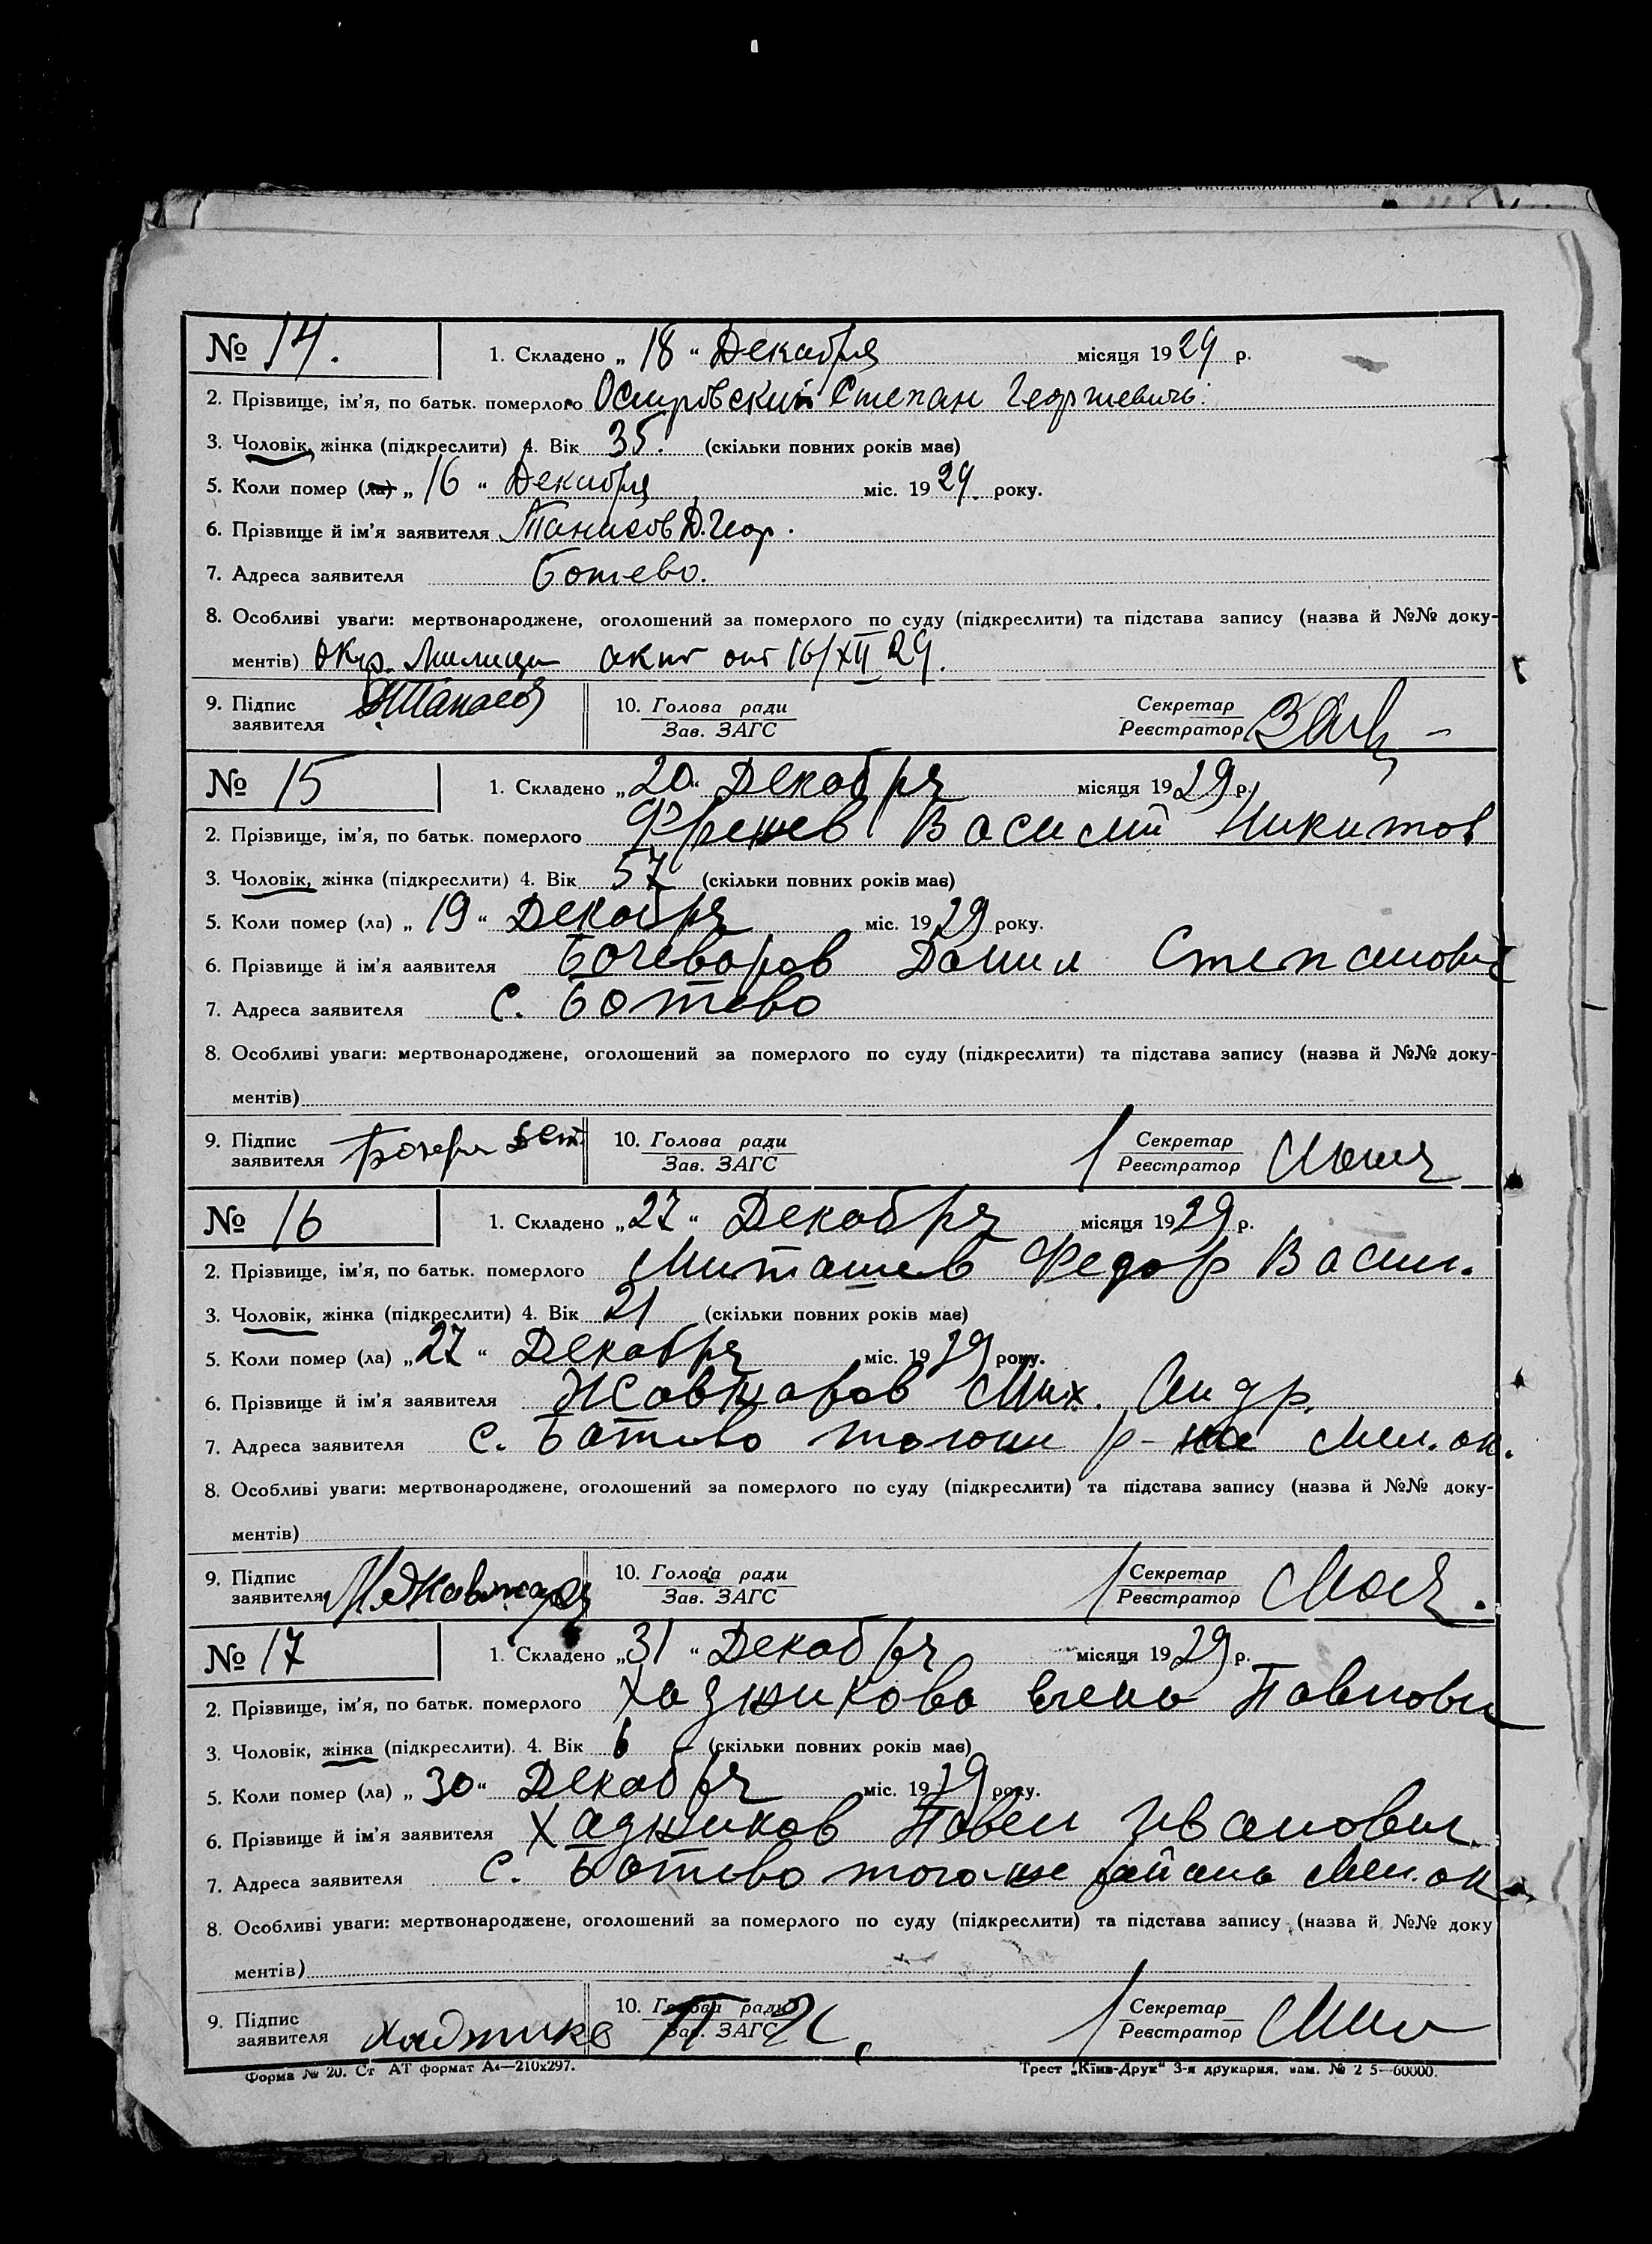 № 14. 1. Складено „ 18 “ Декабря місяця 1929 р.
2. Прізвище, ім'я, по батьк. померлого Островский Степан Георгиевичь.
3. Чоловік, жінка (підкреслити) 4. Вік 35. (скільки повних років має)
5. Коли помер (ла) „ 16 “ Декабря міс. 1929. року.
6. Прізвище й ім'я заявителя Танасов Д. Геор.
7. Адреса заявителя Ботево.
8. Особливі уваги: мертвонароджене, оголошений за померлого по суду (підкреслити) та підстава запису (назва й №№ доку-
ментів) Окр. Милиции акт от 16/XII 29.
9. Підпис 10. Голова ради Секретар
заявителя Танасов Зав. ЗАГС Реєстратор
№ 15 1. Складено „ 20 “ Декабря місяця 1929 р.
2. Прізвище, ім'я, по батьк. померлого Василий Никитов
3. Чоловік, жінка (підкреслити) 4. Вік 57 (скільки повних років має)
5. Коли помер (ла) „ 19 “ Декабря міс. 1929 року.
6. Прізвище й ім'я ааявителя Бочеваров Данил Степанович
7. Адреса заявителя с. Ботево
8. Особливі уваги: мертвонароджене, оголошений за померлого по суду (підкреслити) та підстава запису (назва й №№ доку-
ментів)
9. Підпис 10. Голова ради Секретар
заявителя Зав. ЗАГС Реєстратор
№ 16 1. Складено „ 27 “ Декабря місяця 1929 р.
2. Прізвище, ім'я, по батьк. померлого Миташев Федор Васил.
3. Чоловік, жінка (підкреслити) 4. Вік 21 (скільки повних років має)
5. Коли помер (ла) „ 27 “ Декабря міс. 1929 року.
6. Прізвище й ім'я заявителя Жовтаров Мих. Андр.
7. Адреса заявителя с. Ботево р-на Мел. ок.
8. Особливі уваги: мертвонароджене, оголошений за померлого по суду (підкреслити) та підстава запису (назва й №№ доку-
ментів)
9. Підпис 10. Голова ради Секретар
заявителя Зав. ЗАГС Реєстратор
№ 17 1. Складено „ 31 “ Декабря місяця 1929 р.
2. Прізвище, ім'я, по батьк. померлого Хаджикова Елена Павловн
3. Чоловік, жінка (підкреслити). 4. Вік 6 (скільки повних років має)
5. Коли помер (ла) „ 30 “ Декабря міс. 1929 року.
6. Прізвище й ім'я заявителя Хаджиков Павел Иванович
7. Адреса заявителя с. Ботево того же района Мел. ок.
8. Особливі уваги: мертвонароджене, оголошений за померлого по суду (підкреслити) та підстава запису (назва й №№ доку
ментів)
9. Підпис 10. Голова ради Секретар
заявителя Хаджиков П И. Зав. ЗАГС Реєстратор
Форма № 20. Ст АТ формат А4—210x297. Трест „Київ-Друк“ 3-я друкарня, зам. № 2 5—60000.